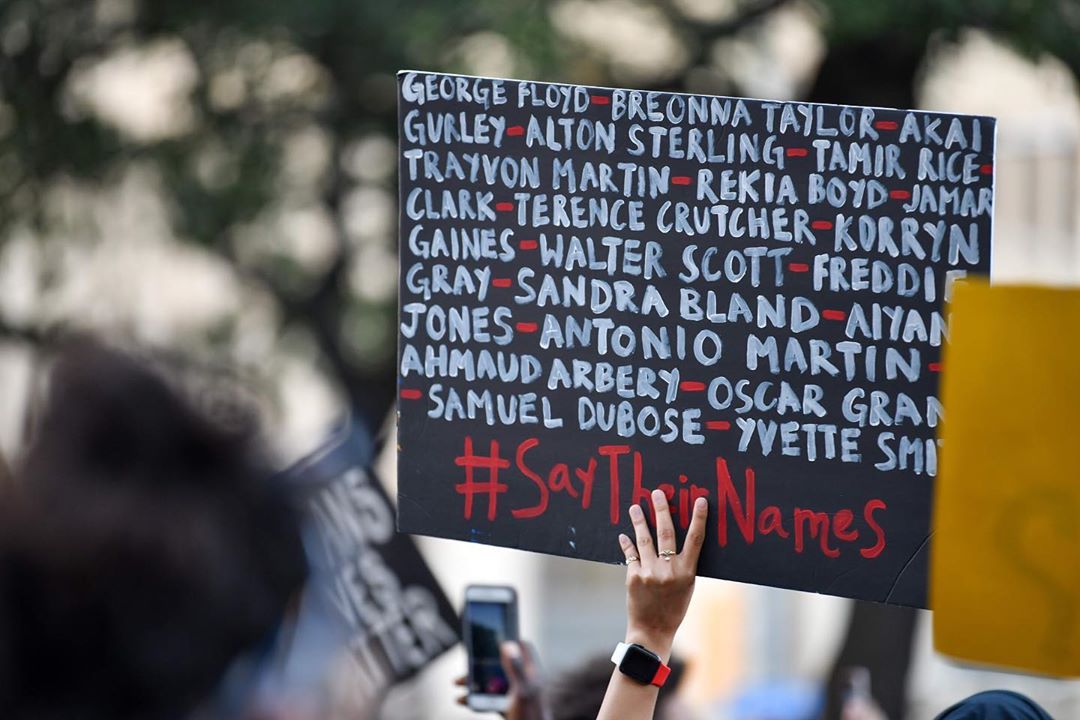 GEORGE FLOYD-BREONNA TAYLOR-AKAI
GURLEY-ALTON STERLING-TAMIR RICE-
TRAYVON MARTIN-REKIA BOYD-JAMAR
CLARK-TERENCE CRUTCHER-KORRYN
GAINES-WALTER SCOTT-FREDDI
GRAY-SANDRA BLAND-AIYAN
JONES-ANTONIO MARTIN-
AHMAUD ARBERY-OSCAR GRAN
-SAMUEL DUBOSE-YVETTE SMI
#SayTheirNames